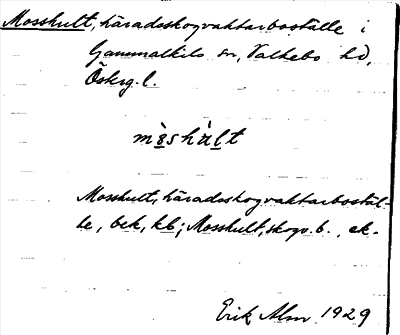 Mosshult, häradsskogvaktarboställe i
Gammalkils sn, Valkebo hd,
Östrg. l.
mòshùlt
Mosshult, häradsskogvaktarbostäl-
le, bek, kb; Mosshult, skogv.b., ek.
Erik Alm 1929